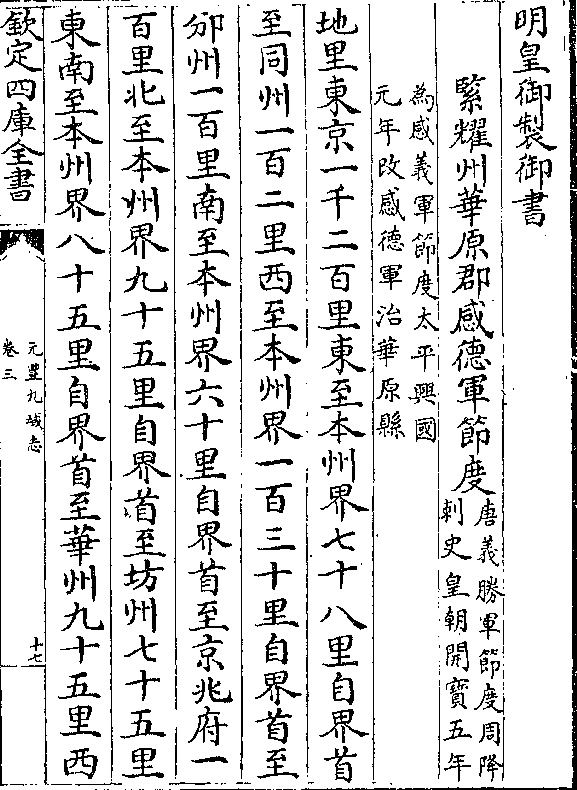 明皇御製御書
緊耀州華原郡感德軍節度唐義勝軍節度周降
刺史皇朝開寶五年
為感義軍節度太平興國
元年改感德軍治華原縣
地里東京一千二百里東至本州界七十八里自界首
至同州一百二里西至本州界一百三十里自界首至
邠州一百里南至本州界六十里自界首至京兆府一
百里北至本州界九十五里自界首至坊州七十五里
東南至本州界八十五里自界首至華州九十五里西
欽定四庫全書
元豐九域志
卷三
十七